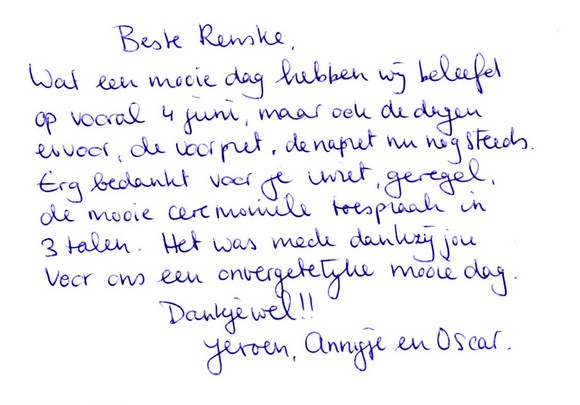 Beste Renske,
Wat een mooie dag hebben wij beleefd
op vooral 4 juni, maar ook de dagen
ervoor, de voorpret, de napret nu nog steeds.
Erg bedankt voor je inzet, geregel,
de mooie ceremoniële toespraak in
3 talen. Het was mede dankzij jou
voor ons een onvergetelijke mooie dag.
Dankjewel!!
Jeroen, Annigje en Oscar.